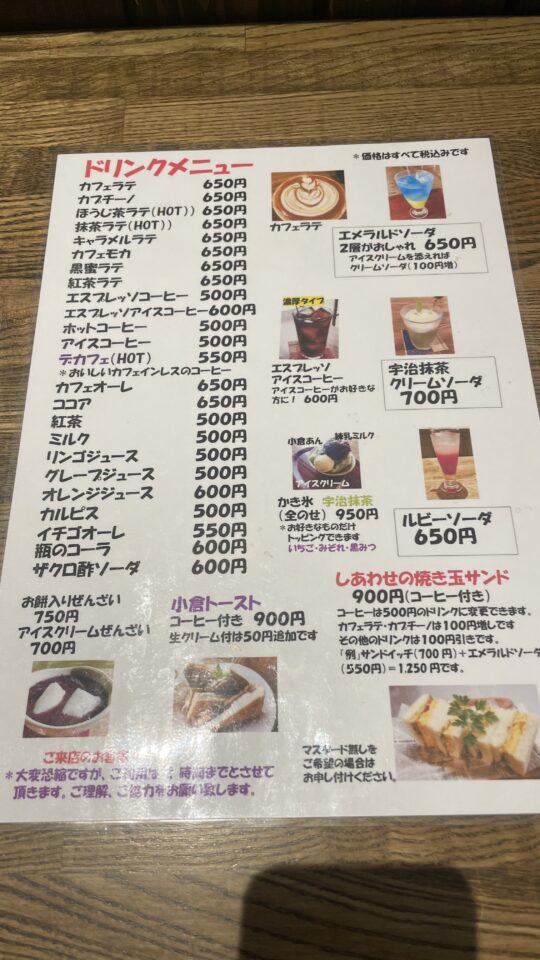 ドリンクメニュー
*価格はすべて税込みです
カフェラテ 650円
カプチーノ 650円
ほうじ茶ラテ(HOT)) 650円
抹茶ラテ(HOT)) 650円
キャラメルラテ 650円
カフェモカ 650円
黒蜜ラテ 650円
紅茶ラテ 650円
エスプレッソコーヒー 500円
エスプレッソアイスコーヒー600円
ホットコーヒー 500円
アイスコーヒー 500円
デカフェ(HOT) 550円
*おいしいカフェインレスのコーヒー
カフェオーレ 650円
ココア 650円
紅茶 500円
ミルク 500円
リンゴジュース 500円
グレープジュース 500円
オレンジジュース 600円
カルピス 500円
イチゴオーレ 550円
瓶のコーラ 600円
ザクロ酢ソーダ 600円
カフェラテ
エメラルドソーダ
2層がおしゃれ 650円
アイスクリームを添えれば
クリームソーダ(100円増)
濃厚タイプ
エスプレッソ
アイスコーヒー
アイスコーヒーがお好きな
方に! 600円
宇治抹茶
クリームソーダ
700円
小倉あん 練乳ミルク
アイスクリーム
かき氷 宇治抹茶
(全のせ) 950円
*お好きなものだけ
トッピングできます
いちご・みぞれ・黒みつ
ルビーソーダ
650円
お餅入りぜんざい
750円
アイスクリームぜんざい
700円
小倉トースト
コーヒー付き 900円
生クリーム付は50円追加です
しあわせの焼き玉サンド
900円(コーヒー付き)
コーヒーは500円のドリンクに変更できます。
カフェラテ・カプチーノは100円増しです
その他のドリンクは100円引きです。
「例」サンドイッチ(700円)+エメラルドソーダ
(550円)=1,250円です。
マスタード無しを
ご希望の場合は
お申し付けください。
ご来店のお客様
*大変恐縮ですが、ご利用は 時間までとさせて
頂きます。ご理解、ご協力をお願い致します。